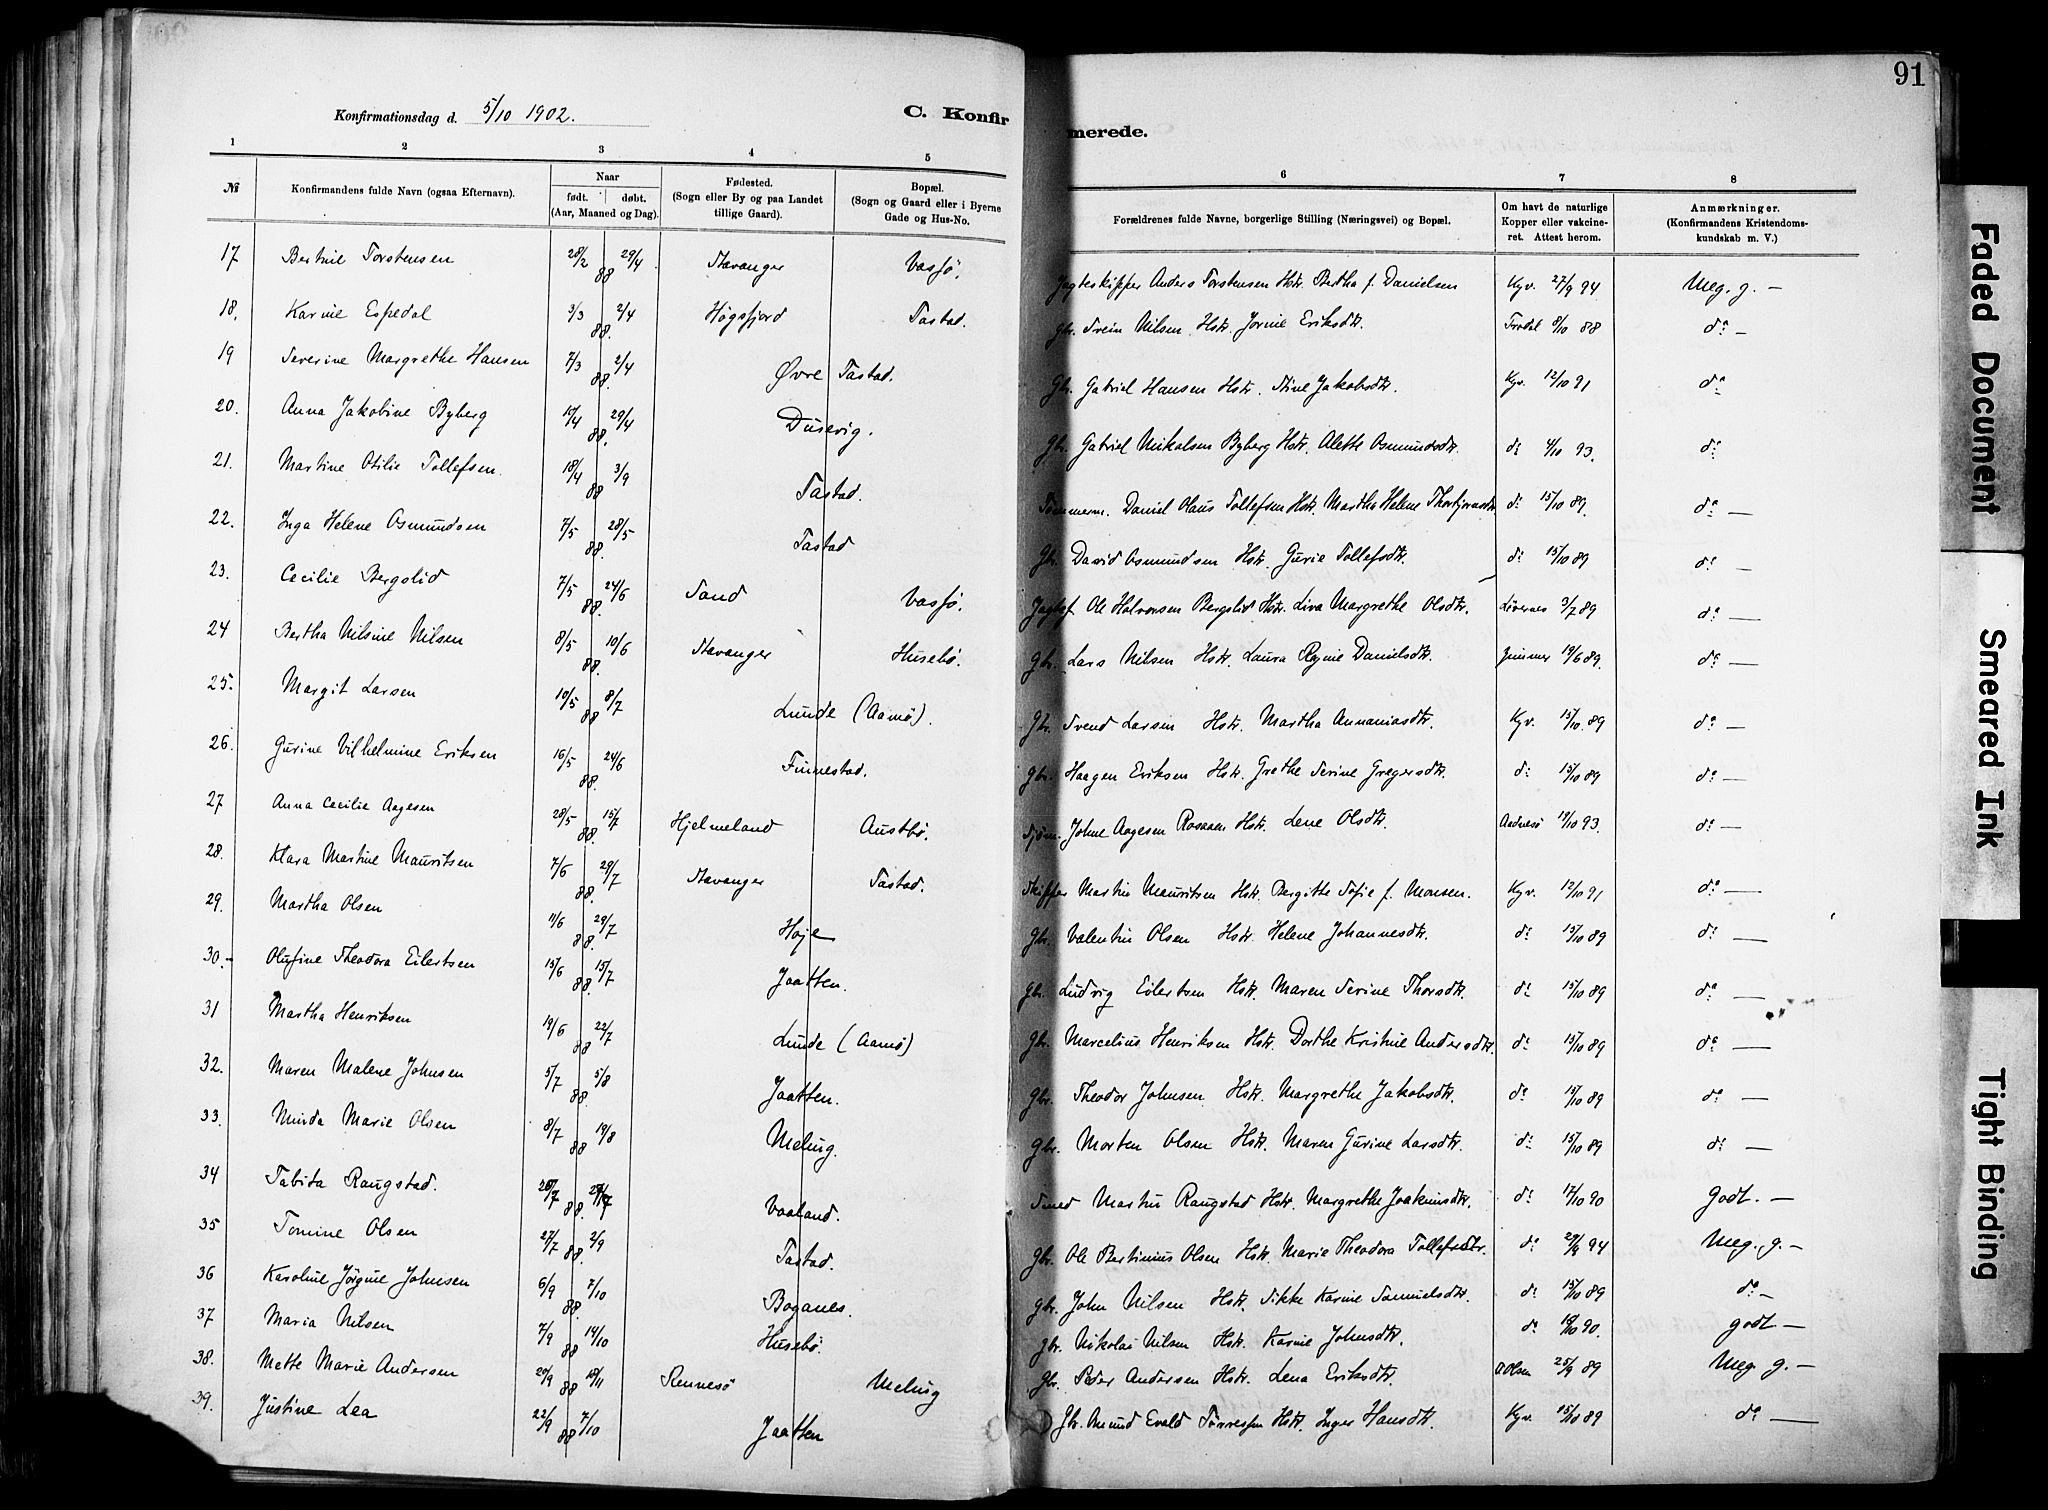 91
Konfirmationsdag d. 5/10 1902.
C. Konfirmerede.
1 2 3 4 5 6 7 8
№ Konfirmandens fulde Navn (ogsaa Efternavn). Naar født. døbt. (Aar, Maaned og Dag). Fødested. (Sogn eller By og paa Landet tillige Gaard). Bopæl. (Sogn og Gaard eller i Byerne Gade og Hus-No. Forældrenes fulde Navne, borgerlige Stilling (Næringsvei) og Bopæl. Om havt de naturlige Kopper eller vakcineret. Attest herom. Anmærkninger. (Konfirmandens Kristendomskundskab m. V.)
17 Bertine Torstensen 28/2 29/4 88 Stavanger Vassø. Jagteskipper Anders Torstensen Hstr. Bertha f. Danielsen Kyv. 27/9 94. Meg. g. —
18. Karine Espedal 3/3 2/4 88. Høgsfjord Tastad. Gbr. Svein Nilsen Hstr. Jorine Eriksdtr. 8/10 88 do —
19 Severine Margrethe Hansen 7/3 2/4 88. Øvre Tastad. Gbr. Gabriel Hansen Hstr. Stine Jakobsdtr. Kyv. 12/10 91 do
20. Anna Jakobine Byberg 29/4 88. Dusevig. Gbr. Gabriel Nikolsen Byberg Hstr. Alette Osmundsdtr. do 4/10 93. do
21. Martine Otilie Tollefsen. 18/4 3/9 88 Tastad. Tømmerm. Daniel Olaus Tollefsen Hstr. Martha Helene Thorbjørnsdtr do 15/10 89. do —
22. Inga Helene Osmundsen 7/5 28/5 88. Tastad Gbr. David Osmundsen Hstr. Gurie Tollefsdtr. do 15/10 89 do —
23. Cecilie Bergslid 7/5 24/6 88. Sand Vassø. Jagtsf. Ole Halvorsen Bergslid Hstr. Liva Margrethe Olsdtr. Løvernes 3/7 89 do —
24 Bertha Nilsine Nilsen 8/5 10/6 88. Stavanger Husebø. Gbr. Lars Nilsen Hstr. Laura Regine Danielsdtr. Zimmer 19/6 89. do —
25. Margit Larsen 10/5 8/7 88 Lunde (Aamø). Gbr. Svend Larsen Hstr. Martha Annaniasdtr. Kyv. 15/10. 89 do —
26. Gurine Vilhelmine Eriksen 16/5 24/6 88. Finnestad. Gbr. Haagen Eriksen Hstr. Grethe Serine Gregersdtr. do 15/10 89 do —
27 Anna Cecilie Aagesen 28/5 15/7 88. Hjelmeland Austbø. Sjøm. Johne Aagesen Rosaaen Hstr. Lene Olsdtr. 19/10 93. do —
28. Klara Martine Mauritsen 7/6 29/7 88. Stavanger Tastad. Skipper Martin Mauritsen Hstr. Bergitte Sofie f. Monsen. Kyv. 12/10 91 do —
29. Martha Olsen 11/6 29/7 88. Høje Gbr. Valentin Olsen Hstr. Helene Johannesdtr. do 15/10 89 do —
30.- Olufine Theodora Eilertsen 15/6 15/7 88. Jaatten. Gbr. Ludvig Eilertsen Hstr. Maren Serine Thorsdtr. do 15/10 89 do —
31 Martha Henriksen 19/6 22/7 88 Lunde (Aamø) Gbr. Marcelius Henriksen Hstr. Dorthe Kristine Andersdtr. do 15/10 89 do —
32. Maren Malene Johnsen 5/7 5/8 88. Jaatten. Gbr. Theodor Johnsen Hstr. Margrethe Jakobsdtr. do 15/10 89 do —
33. Minda Marie Olsen 8/7 19/8 88 Meling. Gbr. Morten Olsen Hstr. Maren Gurine Larsdtr. do 15/10 89 do —
34 Tabita Raugstad. 88. Vaaland. Smed Martin Raugstad Hstr. Margrethe Joakimsdtr. do 17/10 90 Godt. —
35 Tomine Olsen 27/7 2/9 88. Tastad. Gbr. Ole Bertinius Olsen Hstr. Marie Theodora Tollefsdtr. do 29/9 94 Meg. g. —
36 Karoline Jørgine Johnsen 6/9 7/10 88. Boganes. Gbr. John Nilsen Hstr. Sikke Karine Samuelsdtr. do 15/10 89 do —
37 Maria Nilsen 7/9 14/10 88 Husebø. Gbr. Nikolai Nilsen Hstr. Karine Johnsdtr. do 90. godt —
38. Mette Marie Andersen 20/9 18/11 88 Rennesø Meling Gbr. Peder Andersen Hstr. Lena Eriksdtr. Olsen 25/9 89 Meg. g. —
39. Justine Lea 22/9 7/10 88 Jaatten Gbr. Amund Evald Tørressen Hstr. Inger Hansdtr. Kyv. 15/10 89 do —
Faded Document
Smeared Ink
Tight Binding